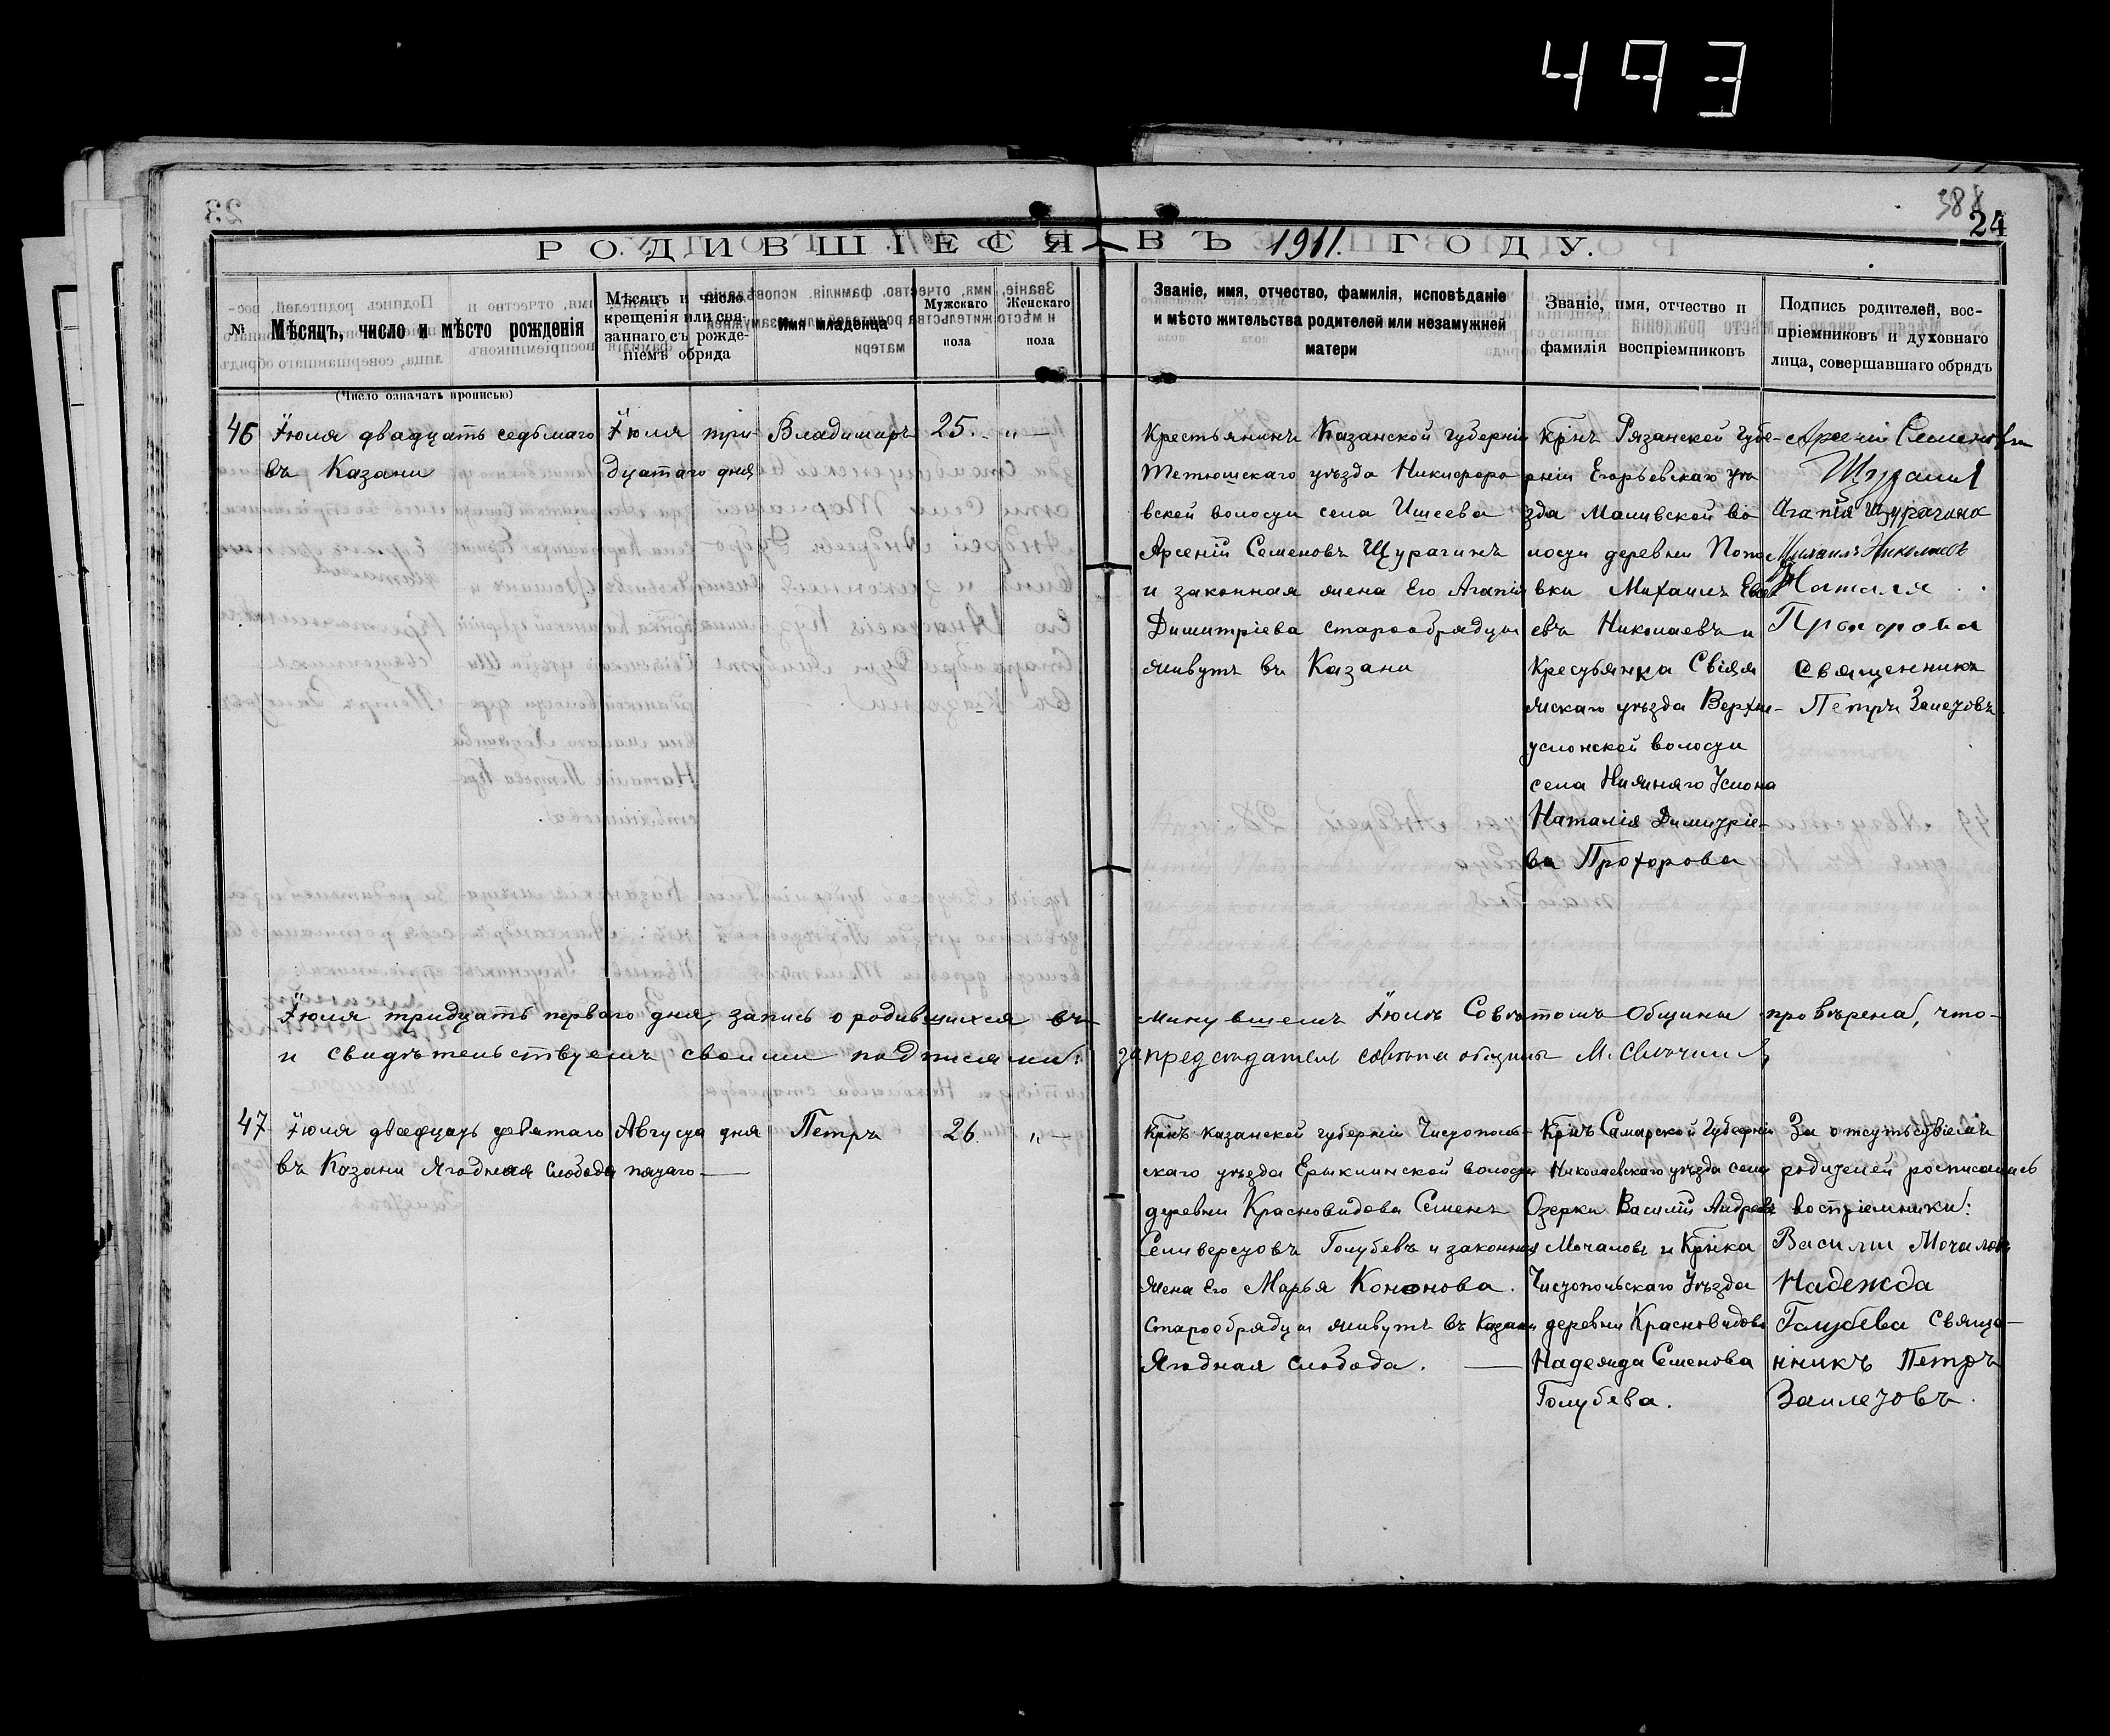 493
388
24
РОДИВШІЕСЯ ВЪ 1911. ГОДУ.
№
Мѣсяцъ, число и мѣсто рожденія
Мѣсяцъ и число
крещенія или свя-
заннаго съ рожде-
ніемъ обряда
Имя младенца
Мужскаго
пола
Женскаго
пола
Званіе, имя, отчество, фамилія, исповѣданіе
и мѣсто жительства родителей или незамужней
матери
Званіе, имя, отчество и
фамилія воспріемниковъ
Подпись родителей, вос-
пріемниковъ и духовнаго
лица, совершавшаго обрядъ
(Число означать прописью)
46
Іюля двадцать седьмаго
въ Казани
Іюля три
дцатаго дня
Владимиръ
25.
„ —
Крестьянинъ Казанской губерніи
Тетюшскаго уѣзда Никифоро
вской волости села Ишеева
Арсеній Семеновъ Щурагинъ
и законная жена Его Агапія
Димитріева старообрядцы
живутъ въ Казани
Крнъ Рязанской губе-
рніи Егорьевскаго уѣ
зда Маливской во
лости деревни Попо
вки Михаилъ
евъ Николаевъ и
Крестьянка Свіяж
жскаго уѣзда Верхне-
услонской волости
села Нижняго Услона
Наталія Димитріе-
ва Прохорова
Арсеній Семеновъ
Агапія Щурагина
Михаилъ Николаевъ
Наталя
Прохорова
Священникъ
Петръ Залетовъ
Іюля тридцать перваго дня, запись о родившихся въ
минувшемъ Іюлѣ Совѣтомъ Общины провѣрена, что-
и свидѣтельствуемъ своими подписями:
за предсѣдатель совѣта общины М.
47
Іюля двадцать девятаго
въ Казани Ягодная слобода
Августа дня
пятаго —
Петръ
26.
„ —
Крнъ Казанской губерніи Чистополь-
скаго уѣзда Ерыклинской волости
деревни Красновидова Семенъ
Селиверстовъ Голубевъ и законная
жена его Марья Кононова.
Старообрядцы живутъ въ Казани
Ягодная слобода. —
Крнъ Самарской Губерніи
Николаевскаго уѣзда села
Озерки Василій Андреевъ
Мочаловъ и Крнка
Чистопольскаго Уѣзда
деревни Красновидова
Надежда Семенова
Голубева.
За отсутсвіемъ
родителей росписались
воспріемники:
Василій Мочаловъ
Надежда
Голубева Свяще-
нникъ Петръ
Залетовъ.